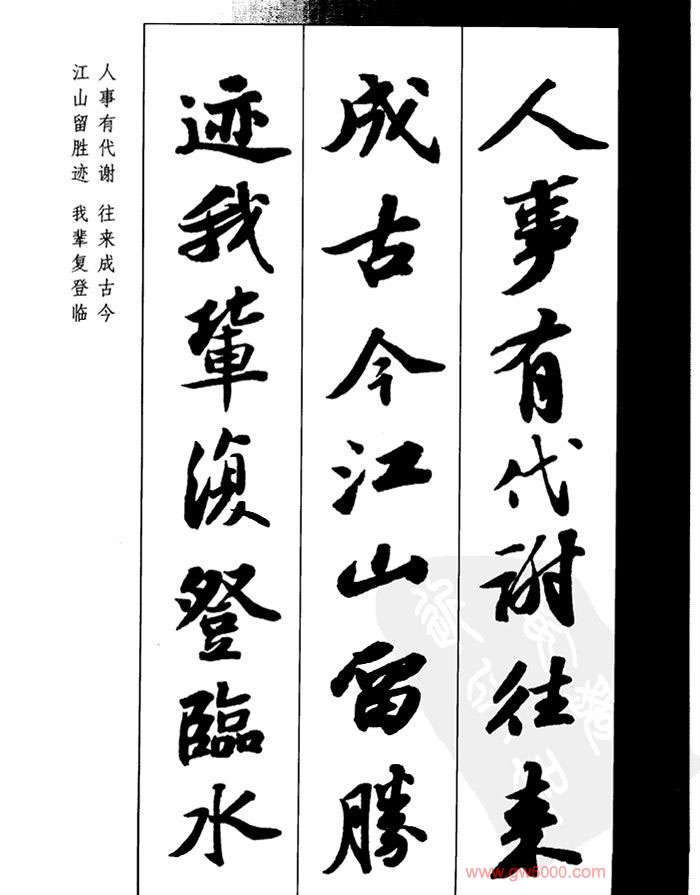 人事有代谢往来
成古今江山留勝
迹我輩復登臨水
人事有代谢 往来成古今
江山留胜迹 我辈复登临
www.gw5000.com